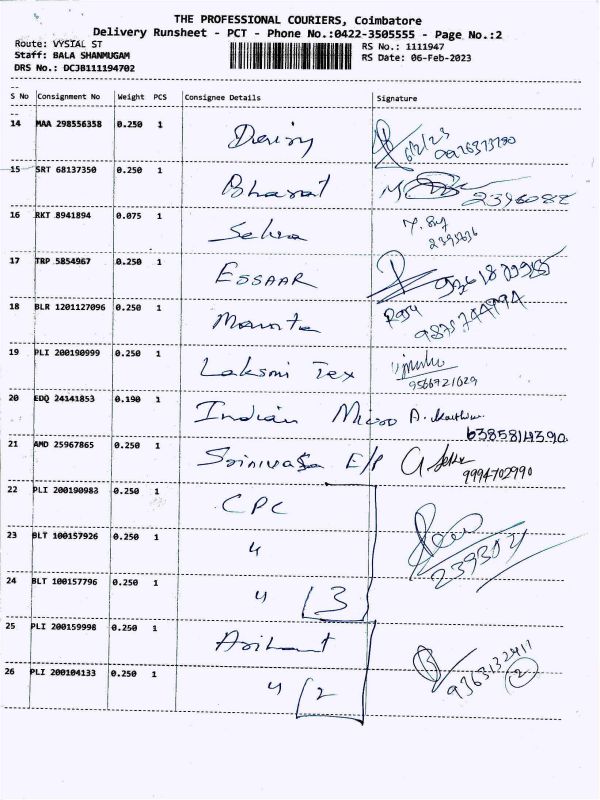 THE PROFESSIONAL COURIERS, Coimbatore
Delivery Runsheet - PCT - Phone No.:0422-3505555 - Page No.:2
Route: VYSIAL ST
Staff: BALA SHANMUGAM
DRS No.: DCJB111194702
RS No.: 1111947
RS Date: 06-Feb-2023
S No Consignment No Weight PCS Consignee Details Signature
14 MAA 298556358 0.250 1 6/2/23
15 SRT 68137350 0.250 1 Bharat
16 RKT 8941894 0.075 1 Selva
17 TRP 5854967 0.250 1 ESSAAR
18 BLR 1201127096 0.250 1 Mamta
19 PLI 200190999 0.250 1 Laksmi Tex
9566921029
20 EDQ 24141853 0.190 1 Indian Micro
6385814390
21 AMD 25967865 0.250 1 Srinivasa E/P
9994702990
22 PLI 200190983 0.250 1 CPC
23 BLT 100157926 0.250 1 "
24 BLT 100157796 0.250 1 " 3
25 PLI 200159998 0.250 1 Arihant
26 PLI 200104133 0.250 1 " 2 2